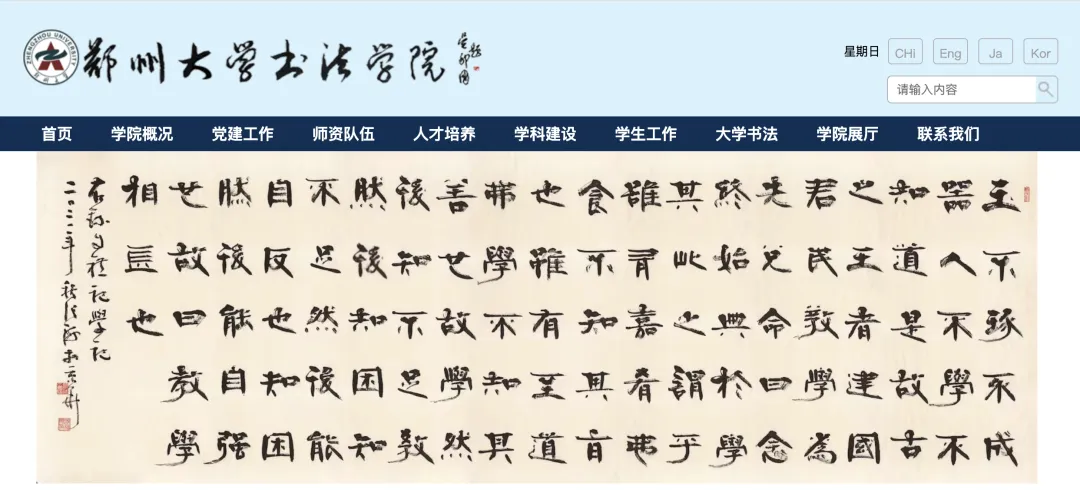 ZHENGZHOU UNIVERSITY
郑州大学书法学院
星期日
CHi
Eng
Ja
Kor
请输入内容
首页 学院概况 党建工作 师资队伍 人才培养 学科建设 学生工作 大学书法 学院展厅 联系我们
玉不琢不成
器人不學不
知道是故古
之王者建國
君民教學為
先兌命曰念
終始典於學
其此之謂乎
雖有嘉肴弗
食不知其旨
也雖有至道
弗學不知其
善也故學然
後知不足教
然後知困知
不足然後能
自反也知困
然後能自强
也故曰教學
相長也
禮記學記
二〇二二年